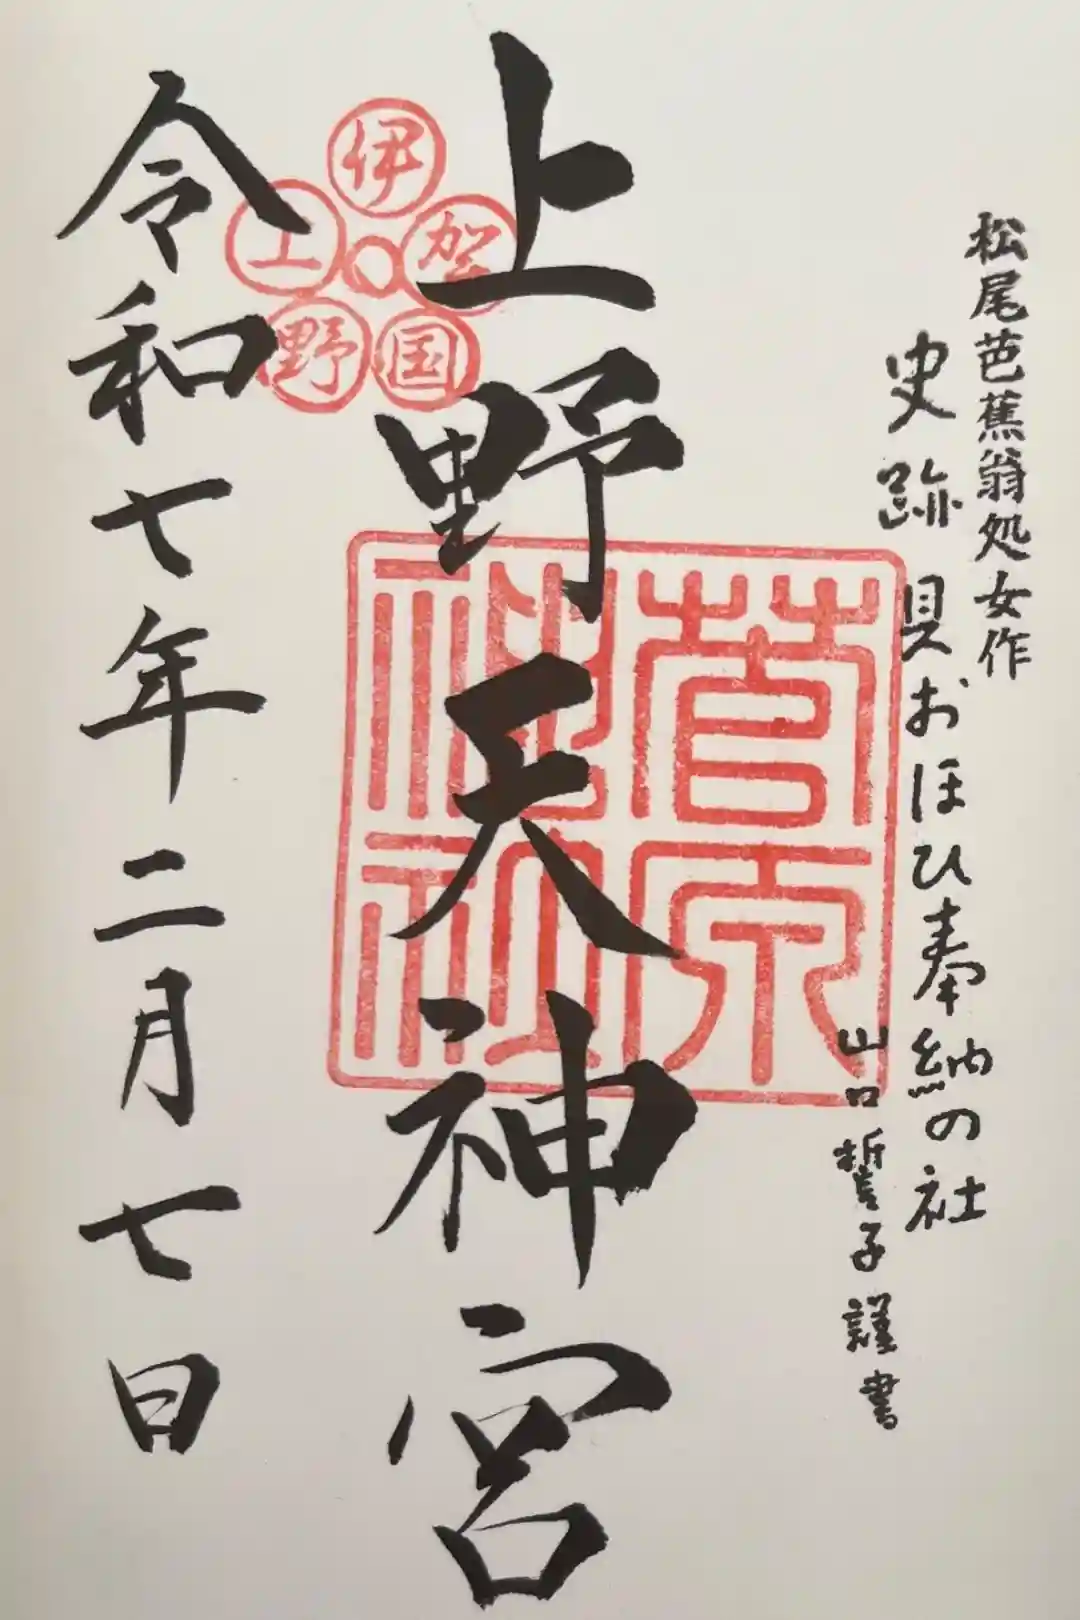 松尾芭蕉翁処女作
史跡 貝おほひ奉納の社
山口誓子謹書
上野天神宮
伊賀国上野
菅原神社
令和七年二月七日